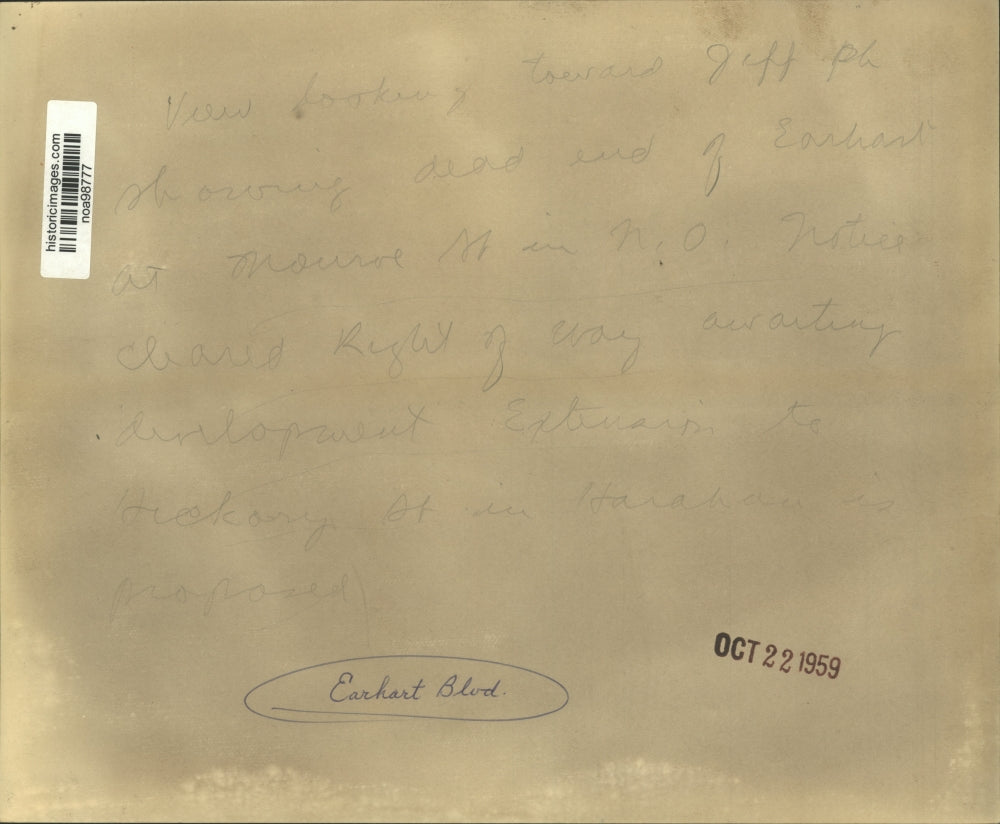 View looking toward Jeff Ph
showing dead end of Earhart
at Monroe St in N.O. Notice
cleared Right of Way awaiting
development Extension to
Hickory St in Harahan is
proposed)
Earhart Blvd.
OCT 22 1959
historicimages.com
noa98777